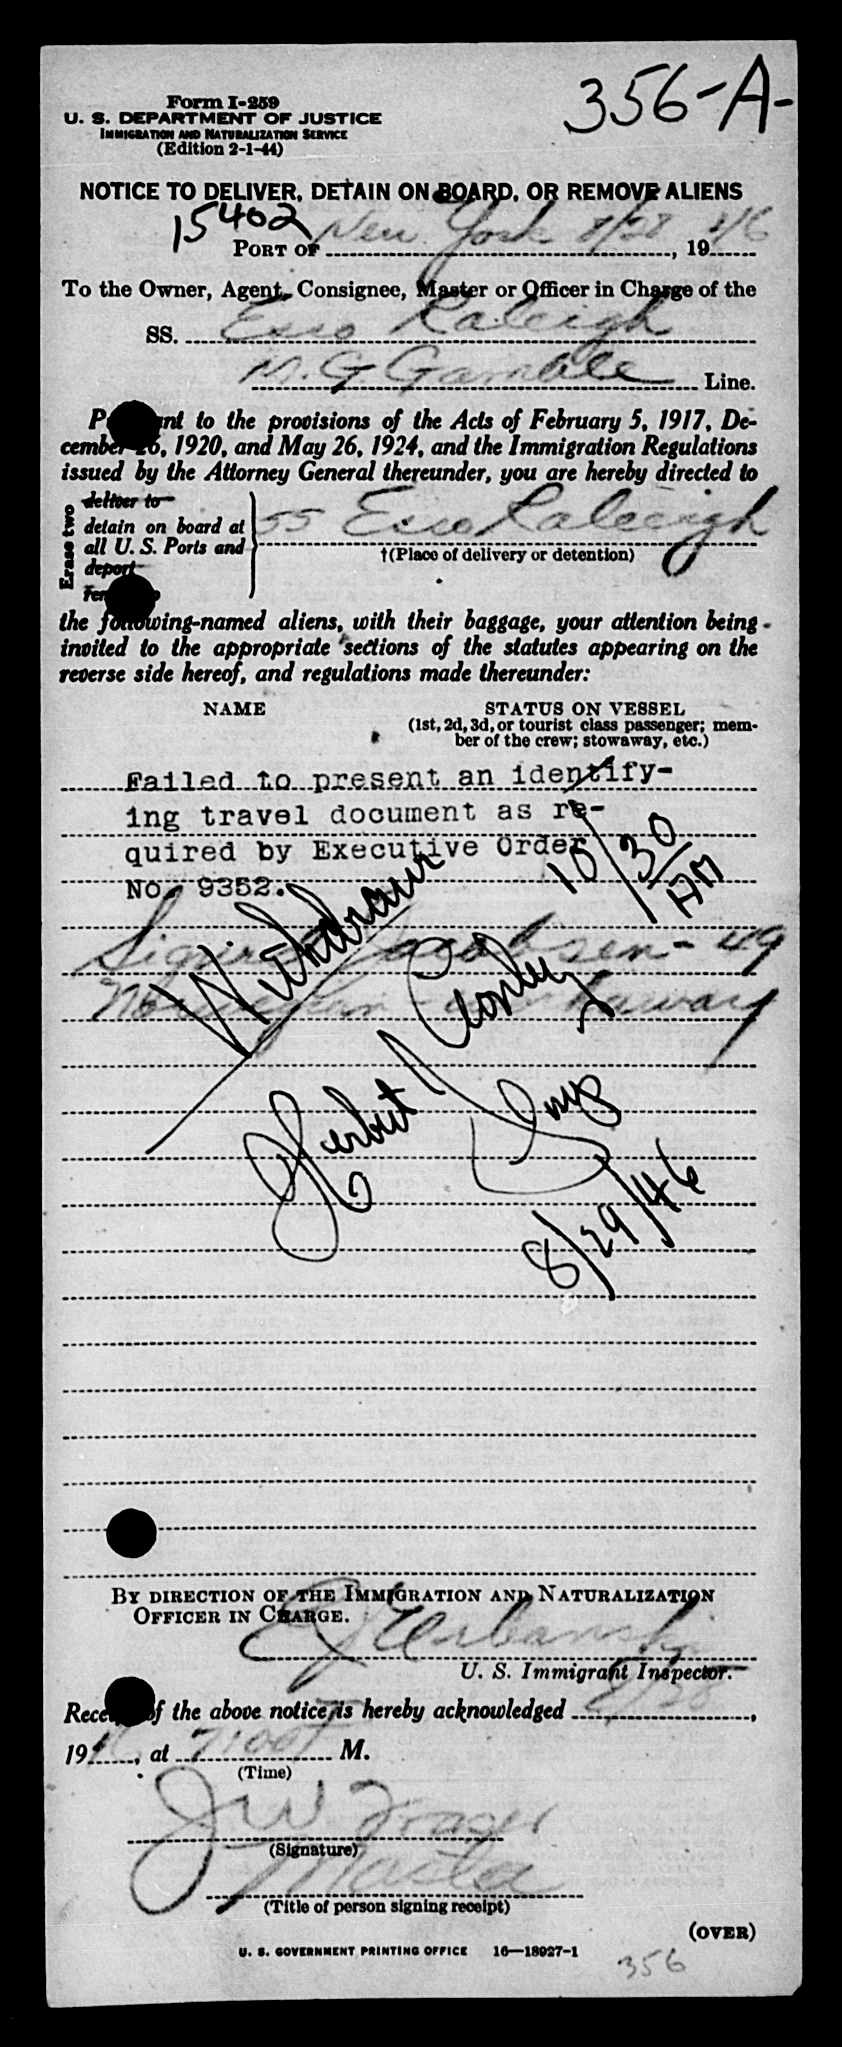 356-A-
Form I-259
U. S. DEPARTMENT OF JUSTICE
IMMIGRATION AND NATURALIZATION SERVICE
(Edition 2-1-44)
NOTICE TO DELIVER, DETAIN ON BOARD, OR REMOVE ALIENS
15402
PORT OF New York 8/28, 1946
To the Owner, Agent, Consignee, Master or Officer in Charge of the
SS. Esso Raleigh
M. G. Gamble Line.
to the provisions of the Acts of February 5, 1917, De-
cember 26, 1920, and May 26, 1924, and the Immigration Regulations
issued by the Attorney General thereunder, you are hereby directed to
Erase two
deliver to
detain on board at
all U. S. Ports and
deport
SS Esso Raleigh
†(Place of delivery or detention)
the following-named aliens, with their baggage, your attention being
invited to the appropriate sections of the statutes appearing on the
reverse side hereof, and regulations made thereunder:
NAME
STATUS ON VESSEL
(1st, 2d, 3d, or tourist class passenger; mem-
ber of the crew; stowaway, etc.)
Failed to present an identify-
ing travel document as re-
quired by Executive Order
No. 9352.
10/30/AM
Withdrawn
Jacobsen - 49
Norwegian - workaway
Herbert J Conley
Insp
8/29/46
BY DIRECTION OF THE IMMIGRATION AND NATURALIZATION
OFFICER IN CHARGE.
E J Urbanski
U. S. Immigrant Inspector.
Receipt of the above notice is hereby acknowledged 8/28,
1946, at 7:00 P M.
(Time)
J W Fraser
(Signature)
Master
(Title of person signing receipt)
(OVER)
U. S. GOVERNMENT PRINTING OFFICE 16—18927-1
356